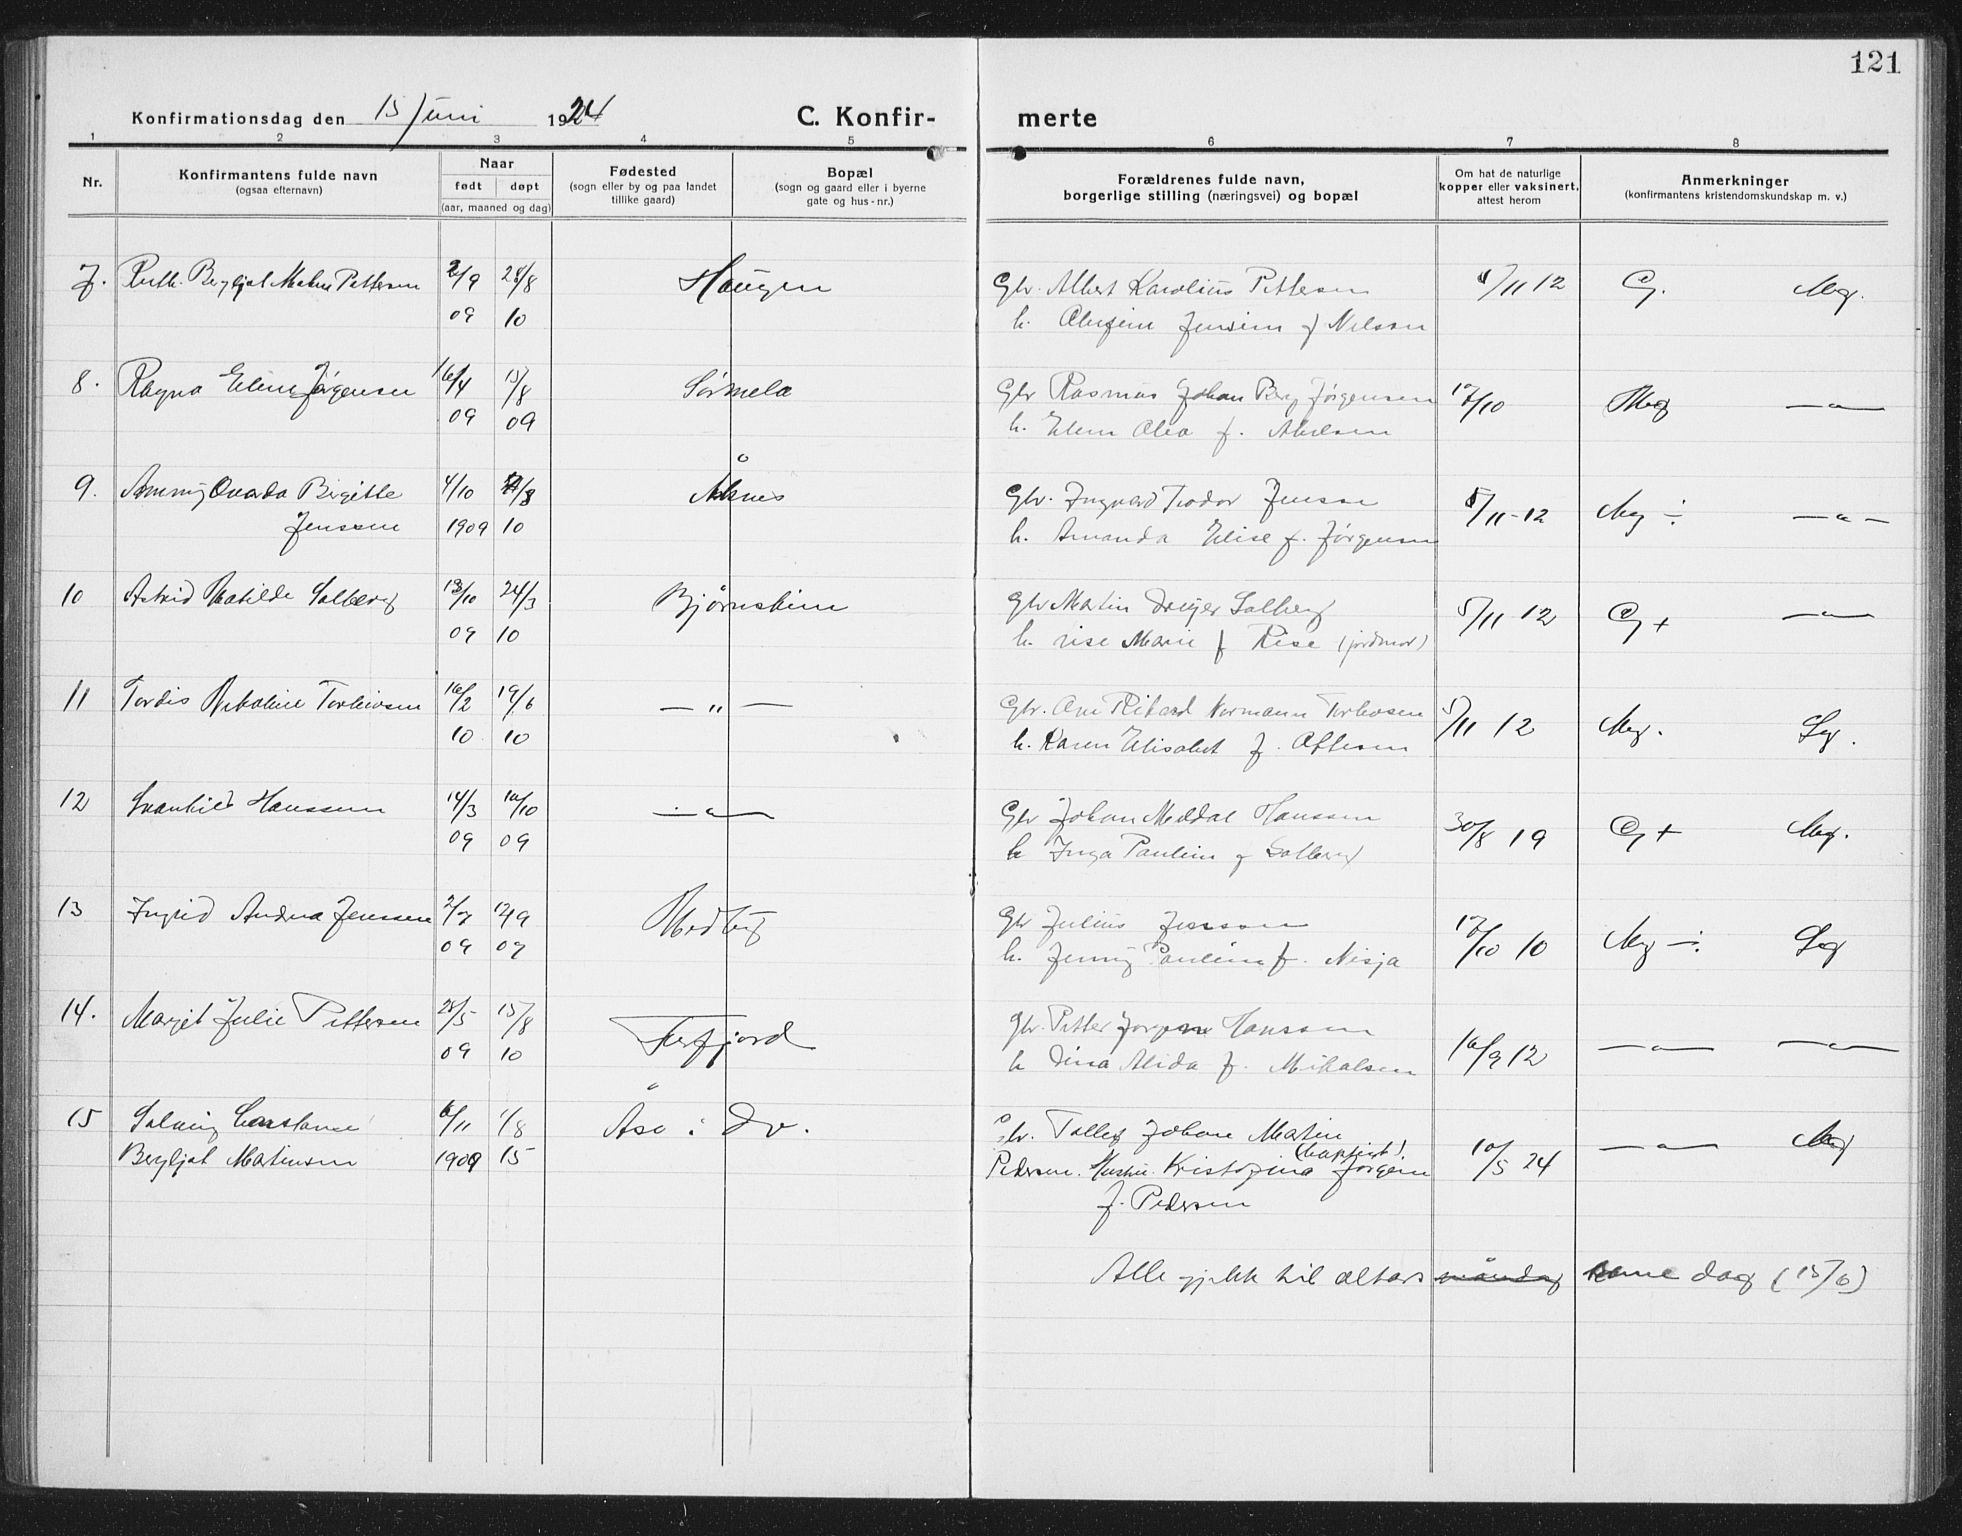 121
Konfirmationsdag den 15 Juni 1924
C. Konfirmerte
1 2 3 4 5 6 7 8
Nr.
Konfirmantens fulde navn
(ogsaa efternavn)
Naar
født døpt
(aar, maaned og dag)
Fødested
(sogn eller by og paa landet
tillike gaard)
Bopæl
(sogn og gaard eller i byerne
gate og hus-nr.)
Forældrenes fulde navn,
borgerlige stilling (næringsvei) og bopæl
Om hat de naturlige
kopper eller vaksinert,
attest herom
Anmerkninger
(konfirmantens kristendomskundskap m. v.)
7. Ruth Bergljot Pettersen 2/9 28/8 Haugen Gbr. Albert Karolius Pettersen 5/11 12 G. Mg.
09 10 h. Jensine f Nilsen
8. Ragna Eline Jørgensen 16/4 15/8 Sørmela Gbr Rasmus Johan Berg Jørgensen 17/10 Mg —"—
09 09 h. Elen Olea f.
9. Birgitte 4/10 /8 Åknes Gbr. Ingvard Teodor Jensen 5/11-12 Mg ÷ —"—
Jenssen 1909 10 h. Amanda Elise f. Jørgensen
10 Astrid Matilde Solberg 13/10 24/3 Bjørnskin Gbr Martin Dreyer Solberg 5/11 12 G + —"—
09 10 h. Marie f Rise (jordmor)
11 Tordis Nikoline 16/2 19/6 — " — Gbr. Rikard Normann 5/11 12 Mg. Sg.
10 10 h. Karen Elisabet f.
12 Svanhild Hanssen 14/3 10/10 —"— Gbr Johan Meldal Hanssen 30/8 19 G + Mg.
09 09 h Inga Pauline f Solberg
13 Ingrid Andrea Jenssen 2/7 12/9 Medby Gbr Julius Jenssen 17/10 10 Mg ÷ Sg
09 09 h. Jenny Pauline f. Nisja
14. Margit Julie Pettersen 28/5 15/8 Gbr. Petter Jørgen Hanssen 16/9 12 —"— —"—
09 10 h Dina Alida f. Mikalsen
15 Solveig Constanse 6/11 1/8 Åse i Dv. Gbr. Johan Martin 10/5 24 —"— Mg
Bergljot Martinsen 1909 15 (baptist).
Pedersen. Hustru. Kristofina Jørgine
f. Pedersen
Alle gjekk til alters måndag same dag (15/6)